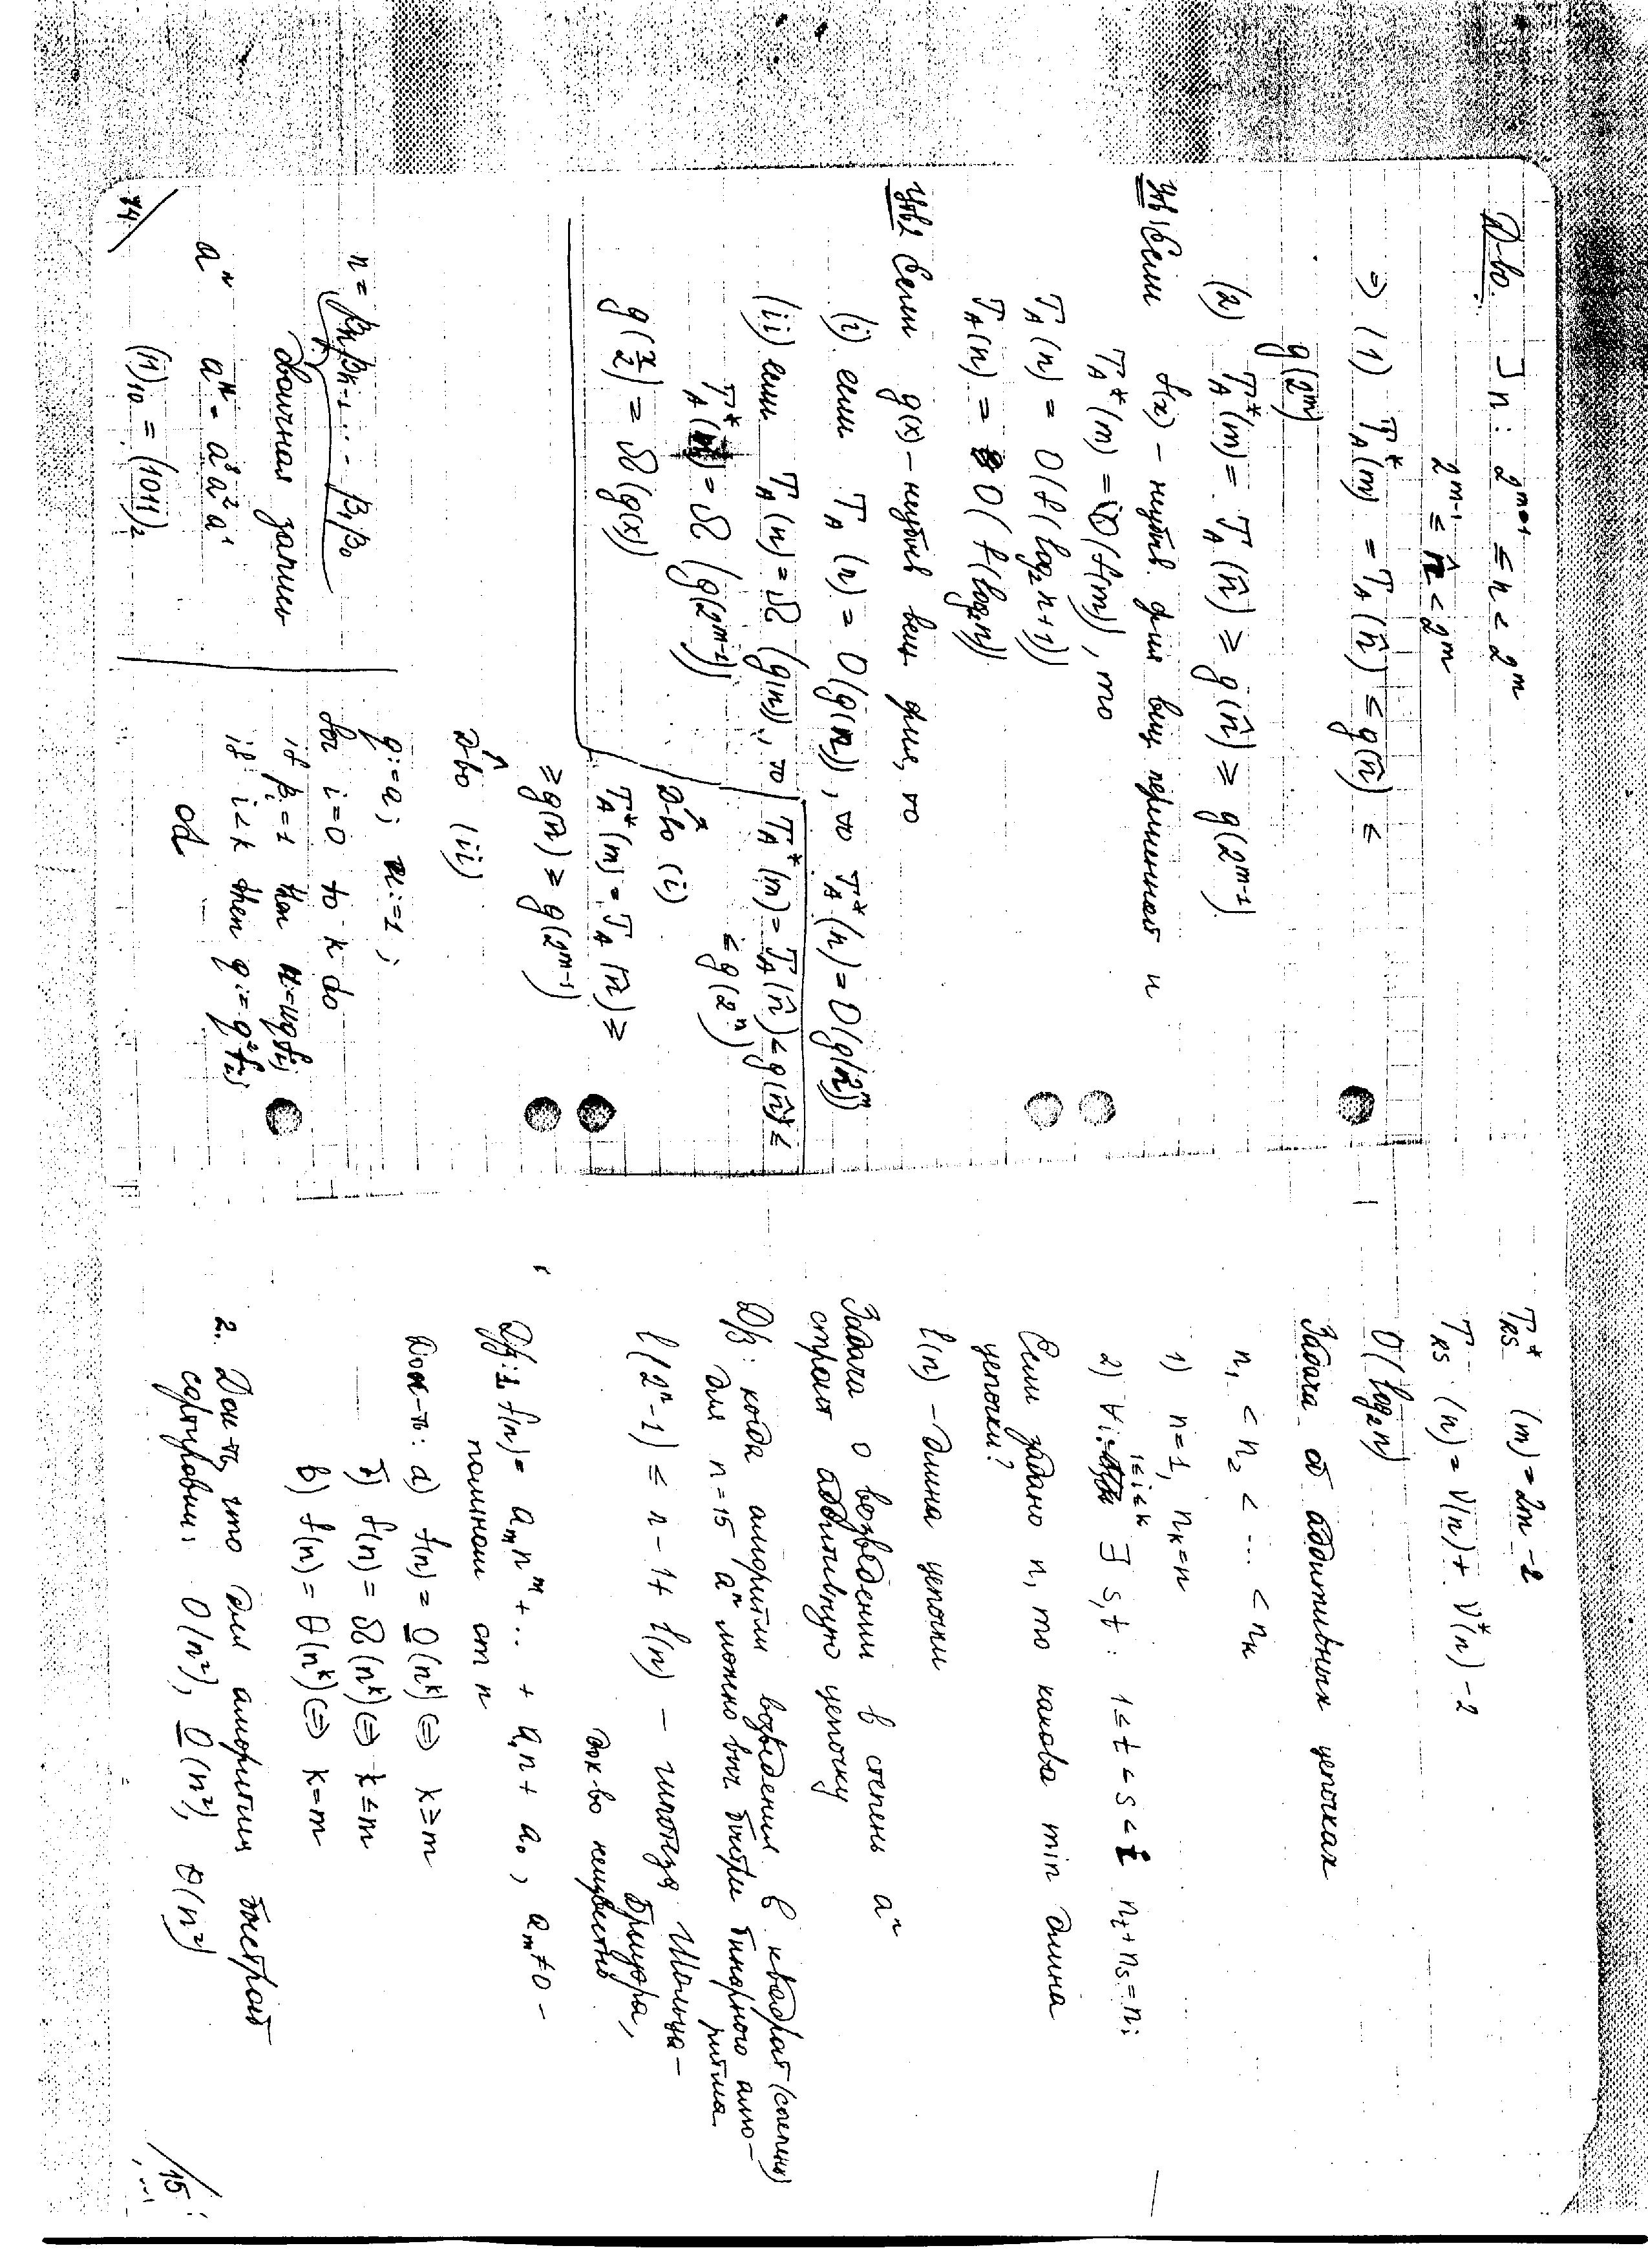 Д-во. ∃ n: 2^{m-1} ≤ n < 2^m
2^{m-1} ≤ n̂ < 2^m
⇒ (1) T*_A(m) = T_A(n̂) ≤ g(n̂) ≤
g(2^m)
(2) T*_A(m) = T_A(n̂) ≥ g(n̂) ≥ g(2^{m-1})
Утв1 Если f(x) – неубыв. функ вещ переменной и
T*_A(m) = O(f(m)), то
T_A(n) = O(f(log₂n+1))
T_A(n) = O(f(log₂n))
Утв2 Если g(x) – неубыв вещ функ, то
(i) если T_A(n) = O(g(n)), то T*_A(n) = O(g(2^m))
(ii) если T_A(n) = Ω(g(n)), то
T*_A(m) = Ω(g(2^{m-1}))
g(x/2) = Ω(g(x))
T*_A(m) = T_A(n̂) ≤ g(n̂) ≤
≤ g(2^m)
Д-во (i)
T*_A(m) = T_A(n̂) ≥
≥ g(n̂) ≥ g(2^{m-1})
Д-во (ii)
n = β_k β_{k-1} ... β_1 β_0
двоичная запись
a^n a^n = a^8 a^2 a^1
(11)₁₀ = (1011)₂
q := a; u := 1;
for i=0 to k do
if β_i = 1 then u := uq
if i<k then q := q²
od
14
T*_{RS}(m) = 2m-2
T_{RS}(n) = ν(n) + ν*(n) - 2
O(log₂n)
Задача об аддитивных цепочках
n₁ < n₂ < ... < n_k
1) n=1, n_k=n
2) ∀i 1≤i≤k ∃ s,t: 1≤t<s<i n_t+n_s=n_i
Если задано n, то какова min длина
цепочки?
l(n) – длина цепочки
Задача о возведении в степень a^n
строит аддитивную цепочку
Д/з: когда алгоритм возведения в квадрат (степень)
для n=15 a^n можно выч быстрее бинарного алго-
ритма
l(2^n-1) ≤ n-1+l(n) – гипотеза Шольца-
Брауэра,
док-во неизвестно
Д/з: 1 f(n) = a_m n^m + ... + a_1 n + a_0, a_m ≠ 0 –
полином от n
Док-ть: а) f(n) = O(n^k) ⇔ k ≥ m
б) f(n) = Ω(n^k) ⇔ k ≤ m
в) f(n) = θ(n^k) ⇔ k=m
2. Док-ть, что для алгоритма быстрой
сортировки: O(n²), Ω(n²), θ(n²)
15